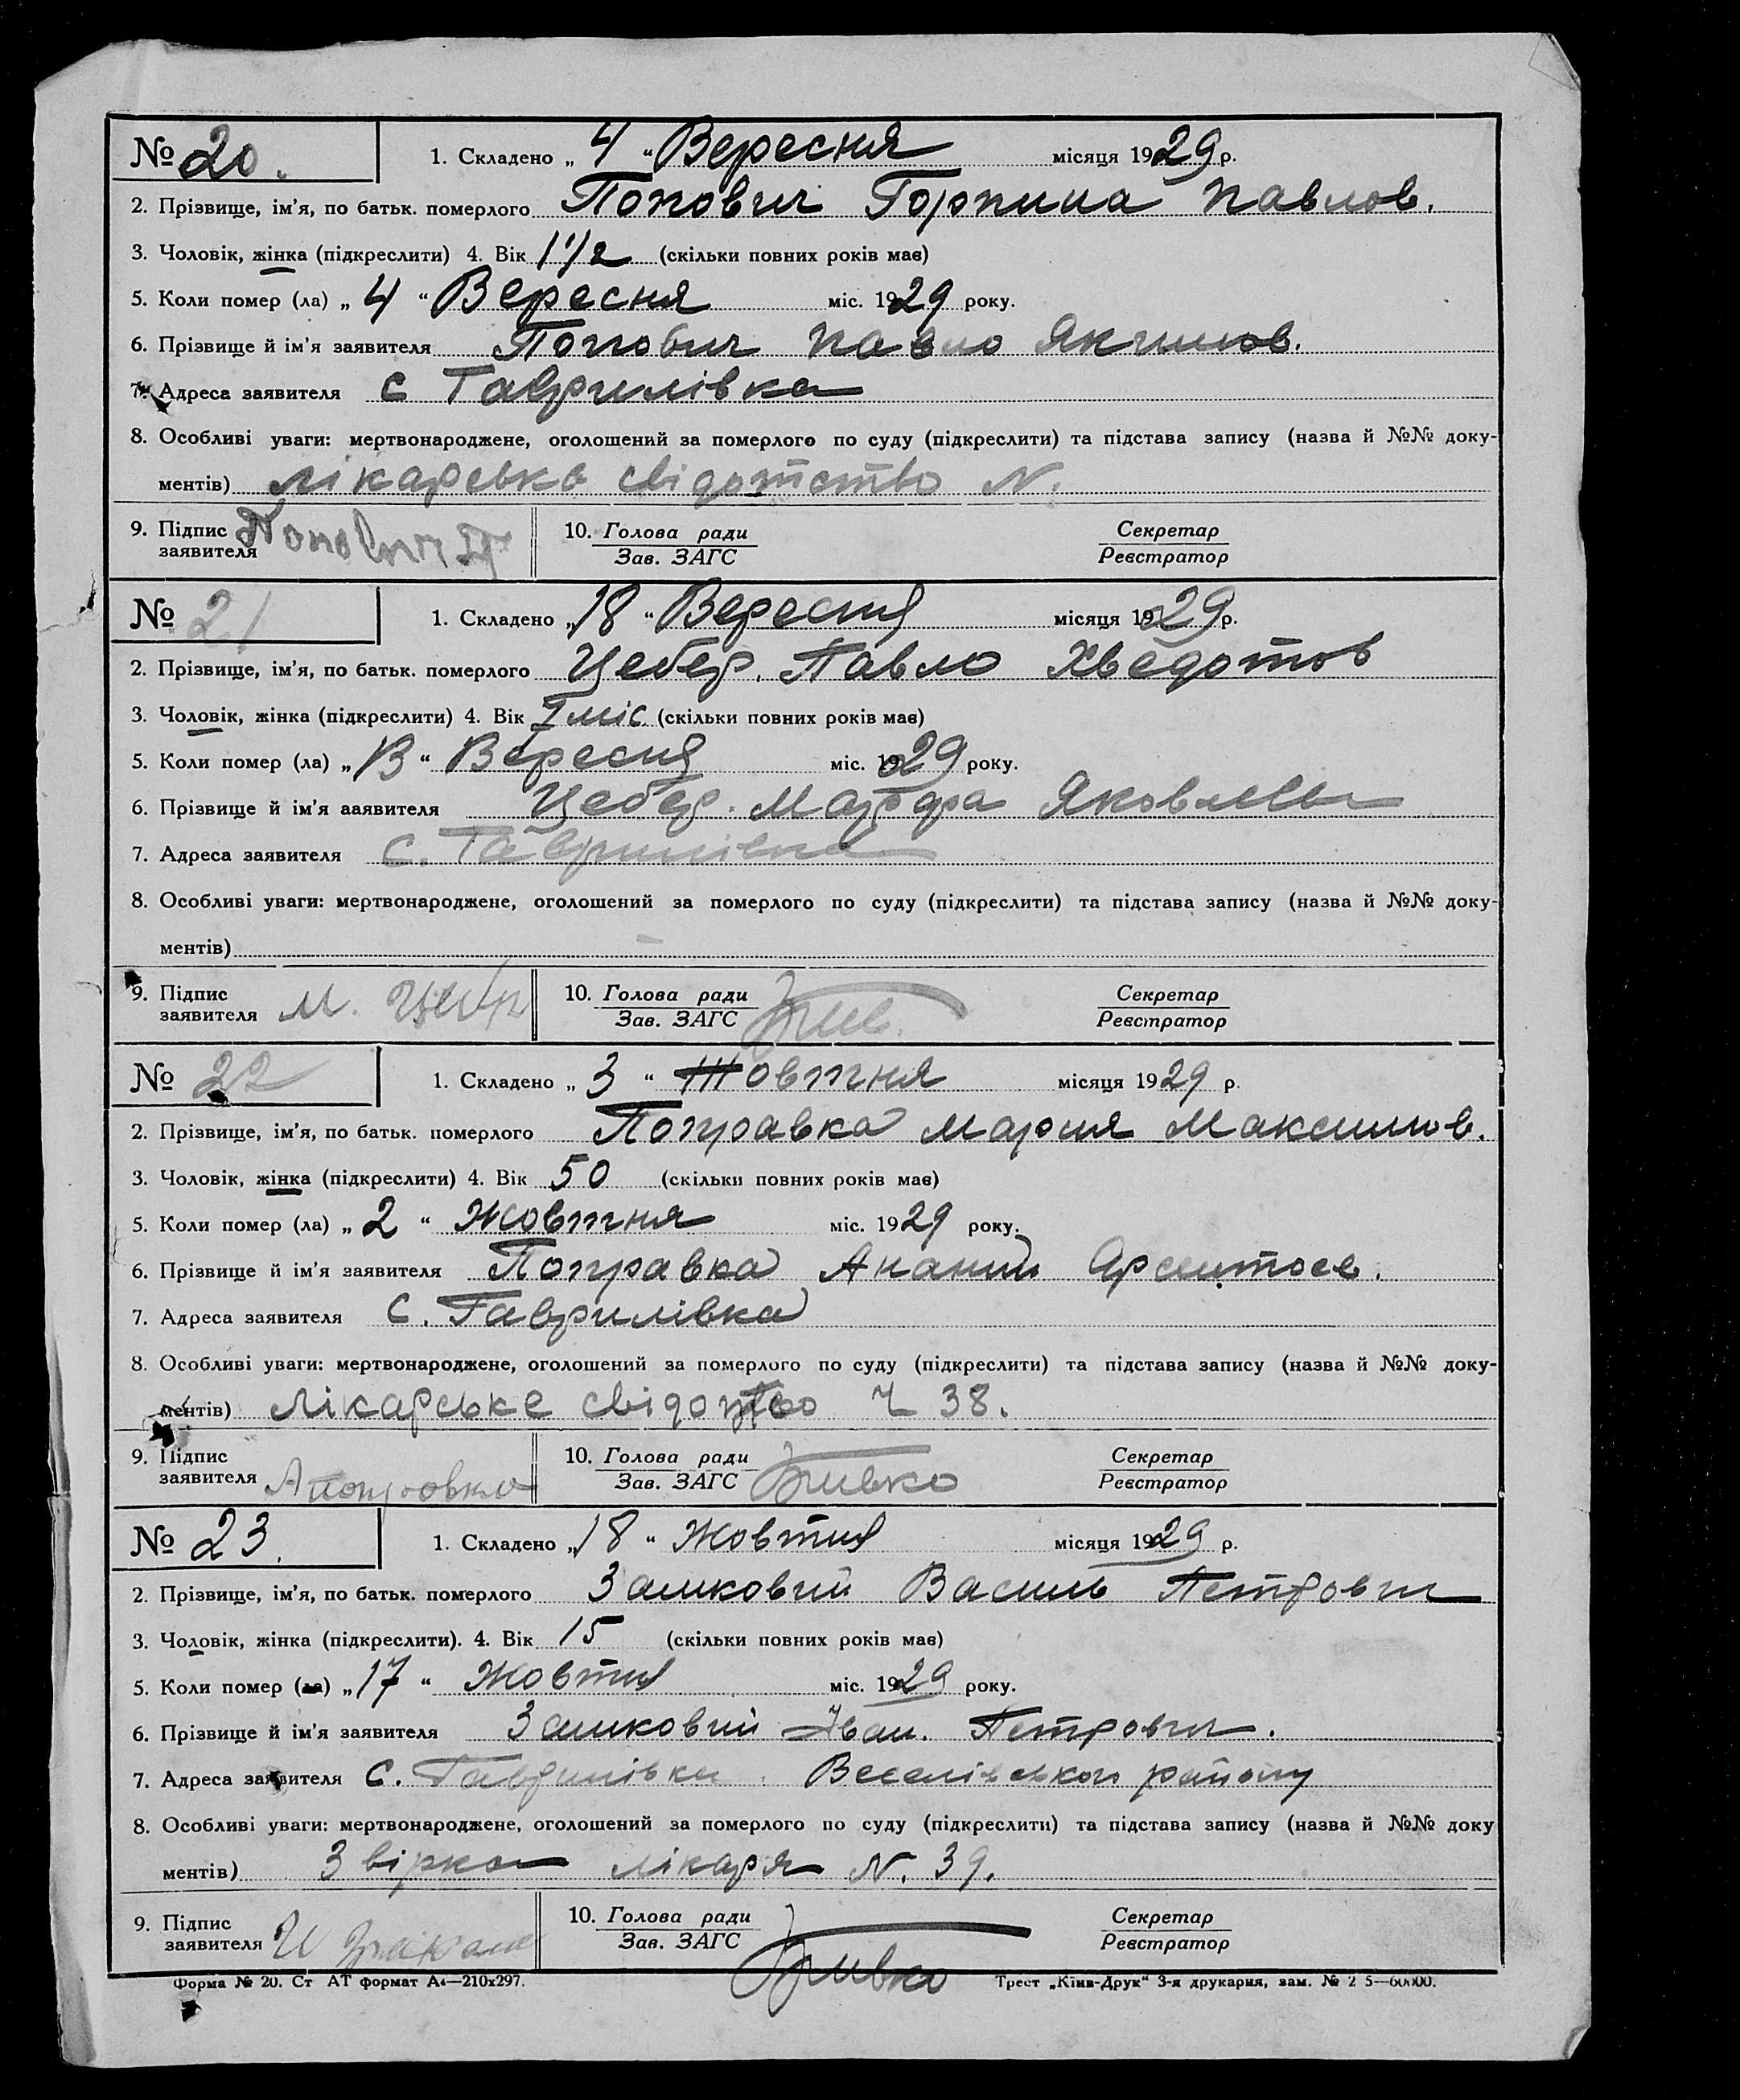 № 20. 1. Складено „ 4 “ Вересня місяця 1929 р.
2. Прізвище, ім'я, по батьк. померлого Попович Горпина Павлов.
3. Чоловік, жінка (підкреслити) 4. Вік 1 1/2 (скільки повних років має)
5. Коли помер (ла) „ 4 “ Вересня міс. 1929 року.
6. Прізвище й ім'я заявителя Попович Павло Якимов.
7. Адреса заявителя с Гаврилівка
8. Особливі уваги: мертвонароджене, оголошений за померлого по суду (підкреслити) та підстава запису (назва й №№ доку-
ментів) лікарська свідотство N.
9. Підпис заявителя Попович П 10. Голова ради Секретар
Зав. ЗАГС Реєстратор
№ 21 1. Складено „ 18 “ Вересня місяця 1929 р.
2. Прізвище, ім'я, по батьк. померлого Цебер. Павло Хведотов
3. Чоловік, жінка (підкреслити) 4. Вік міс (скільки повних років має)
5. Коли помер (ла) „ “ Вересня міс. 1929 року.
6. Прізвище й ім'я заявителя Цебер. Марфа
7. Адреса заявителя с. Гаврилівка
8. Особливі уваги: мертвонароджене, оголошений за померлого по суду (підкреслити) та підстава запису (назва й №№ доку-
ментів)
9. Підпис заявителя М. 10. Голова ради Секретар
Зав. ЗАГС Реєстратор
№ 22 1. Складено „ 3 “ Жовтня місяця 1929 р.
2. Прізвище, ім'я, по батьк. померлого Поправка Мария Максимов.
3. Чоловік, жінка (підкреслити) 4. Вік 50 (скільки повних років має)
5. Коли помер (ла) „ 2 “ Жовтня міс. 1929 року.
6. Прізвище й ім'я заявителя Поправка Ананий
7. Адреса заявителя с. Гаврилівка
8. Особливі уваги: мертвонароджене, оголошений за померлого по суду (підкреслити) та підстава запису (назва й №№ доку-
ментів) Лікарське 38.
9. Підпис заявителя А Поправка 10. Голова ради Секретар
Зав. ЗАГС Реєстратор
№ 23. 1. Складено „ 18 “ Жовтня місяця 1929 р.
2. Прізвище, ім'я, по батьк. померлого Замковий Василь Петрович
3. Чоловік, жінка (підкреслити). 4. Вік 15 (скільки повних років має)
5. Коли помер (ла) „ 17 “ Жовтня міс. 1929 року.
6. Прізвище й ім'я заявителя Замковий Іван. Петрович.
7. Адреса заявителя с. Гаврилівка Веселівського району
8. Особливі уваги: мертвонароджене, оголошений за померлого по суду (підкреслити) та підстава запису (назва й №№ доку
ментів) Звірка лікаря N. 39.
9. Підпис заявителя И 10. Голова ради Секретар
Зав. ЗАГС Реєстратор
Форма № 20. Ст АТ формат А4—210х297. Трест „Київ-Друк“ 3-я друкарня, зам. №